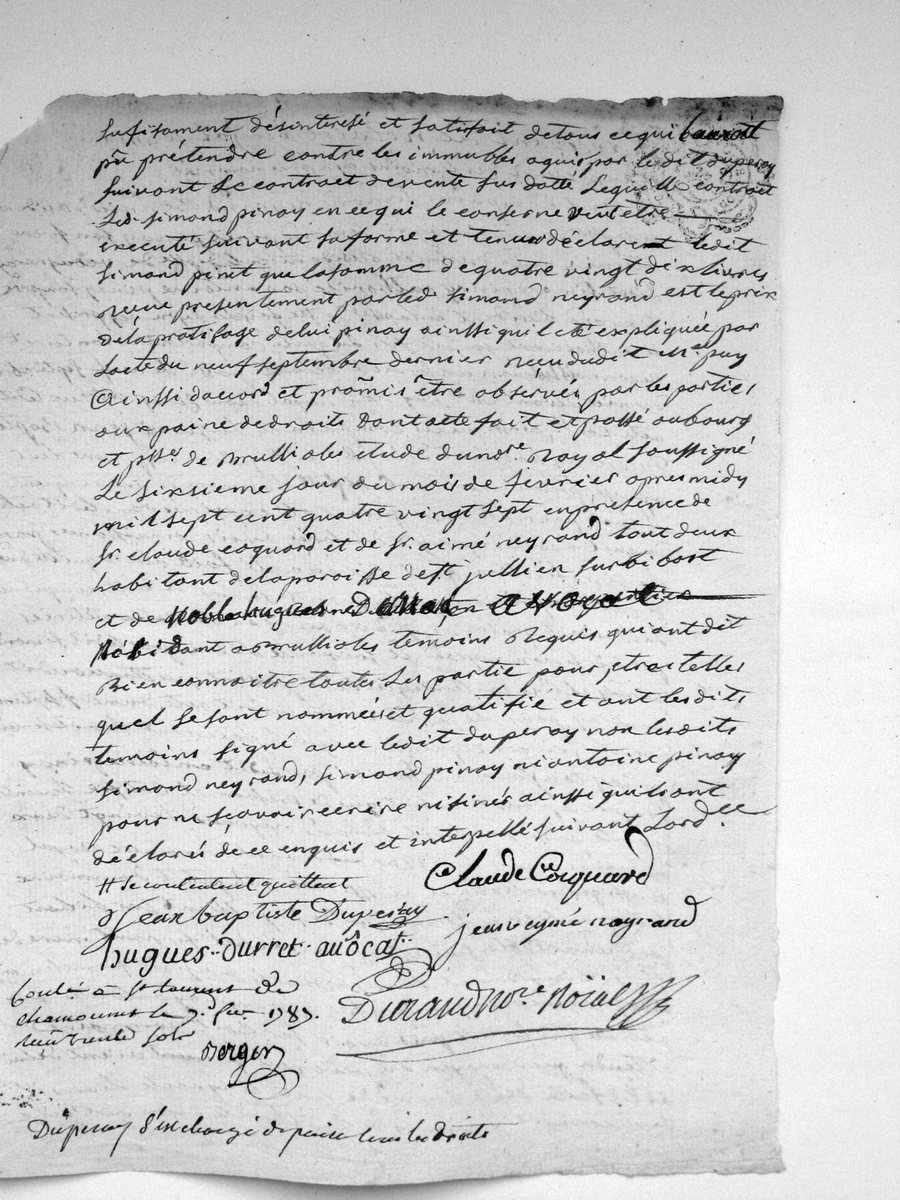 sufisament désinteresé et satisfait de tous ce qui
pû prétendre contre les immubles aquis par le dit duperay
suivant le contract de vente sus datté lequelle contract
led. simond pinay en ce qui le conserne veut etre
executé suivant sa forme et teneur déclarent ledit
simand pinet que la somme de quatre vingt dix livres
reçue présentement par led. simond neyrand est le prix
de la de lui pinay ainssi qu'il esté expliquée par
lacte du neuf septembre dernier reçu dudit me. puy
Ainssi daccord et promis être observés par les parties
aux paine de droits dont acte fait et passé au bourg
et psse. de Brussioles etude du nre. Royal soussigné
Le sixsieme jour du mois de fevrier apres midy
mil sept cent quatre vingt sept en presence de
sr. claude coquard et de sr. aimé neyrand tout deux
habitant de la paroisse de st. jullien sur bibost
et de noble hugues avocat
habitant a Brussioles temoins Requis qui ont dit
Bien connoitre toutes les partie pour etre telles
quel se sont nommées et qualifié et ont les dits
temoins signé avec ledit duperay non lesdits
simond neyrand, simond pinay ni antoine pinay
pour ne sçavoir ecrire ni siner ainssi quils ont
déclarés de ce enquis et interpellé suivant Lordce.
# se contentent quittent
Claude Coquard
Jean baptiste Duperay
jean eymé neyrand
hugues Durret avôcat
Durand nore. Roïal
Conlé a st laurent de
chamousset le 7. fer. 1787.
reçu trente sols
Berger
Duperay s'est chargé de paier tous les droits